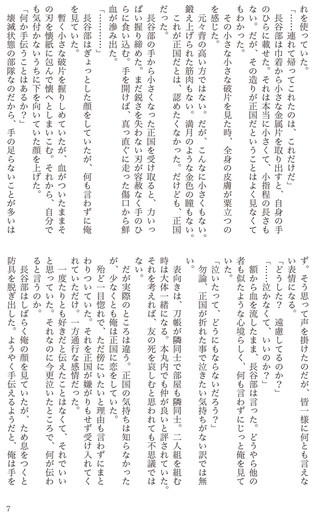 れを使っていた。
「……連れて帰ってこれたのは、これだけだ」
長谷部は巾着から小さな金属片を取り出すと、自身の手
のひらに載せた。それは本当に小さくて、小指程の長さも
ない。だが、その造りが正国だということはよく見なくて
もわかった。
その小さな小さな破片を見た時、全身の皮膚が粟立つの
を感じた。
元々背の高い方ではない。だが、こんなに小さくもない。
鍛え上げられた筋肉もない。満月のような金色の瞳もない。
これが正国だとは、認めたくなかった。だけども、正国
だった。
長谷部の手から小さくなった正国を受け取ると、力いっ
ぱい握り締めた。まだ鋭さを失わない刃が容赦なく手のひ
らに食い込む。手を開けば、真っ直ぐに走った傷口から鮮
血が滲み出た。
「………」
長谷部はぎょっとした顔をしていたが、何も言わずに俺
を見ていた。
暫く小さな破片を握りしめていたが、血がついたままそ
の刃を懐紙に包んで懐へとしまいこむ。それから、自分で
も気付かないうちに下を向いていた顔を上げた。
「何か手伝うことはあるか？」
壊滅状態の部隊なのだから、手の足らないことが多いは
ず。そう思って声を掛けたのだが、皆一様に何とも言えな
い表情になる。
「どうした？　遠慮してるのか？」
「……泣かなくて、いいのか？」
額から血を流したまま、長谷部は言った。どうやら他の
者も似たような心境らしく、何も言わずにじっと俺を見て
いた。
「泣いたって、どうにもならないだろう？」
勿論、正国が折れた事で泣きたい気持ちがない訳では無
かった。
表向きは、刀帳が隣同士で部屋も隣同士。二人組を組む
時は大体一緒になる。本丸内でも仲が良いと評されていた。
それを考えれば、友の死を哀しむと思われても不思議では
ない。
だが実際のところは違う。正国の気持ちは知らなかった
が、少なくとも俺は正国に恋をしていた。
殆ど一目惚れで、ただ傍にいたいと理由も言わずにまと
わりついていた。それを正国が嫌がりもせず受け入れてく
れていただけ。一方通行な感情だった。
一度たりとも好きだと伝えたことはなくて、それでいい
と思っていた。それなのに今更泣いたところで、何が伝わ
ると言うのか。
長谷部はしばらく俺の顔を見ていたが、ため息をつくと
防具を脱ぎ出した。ようやく手伝えるようだと、俺は手を
7